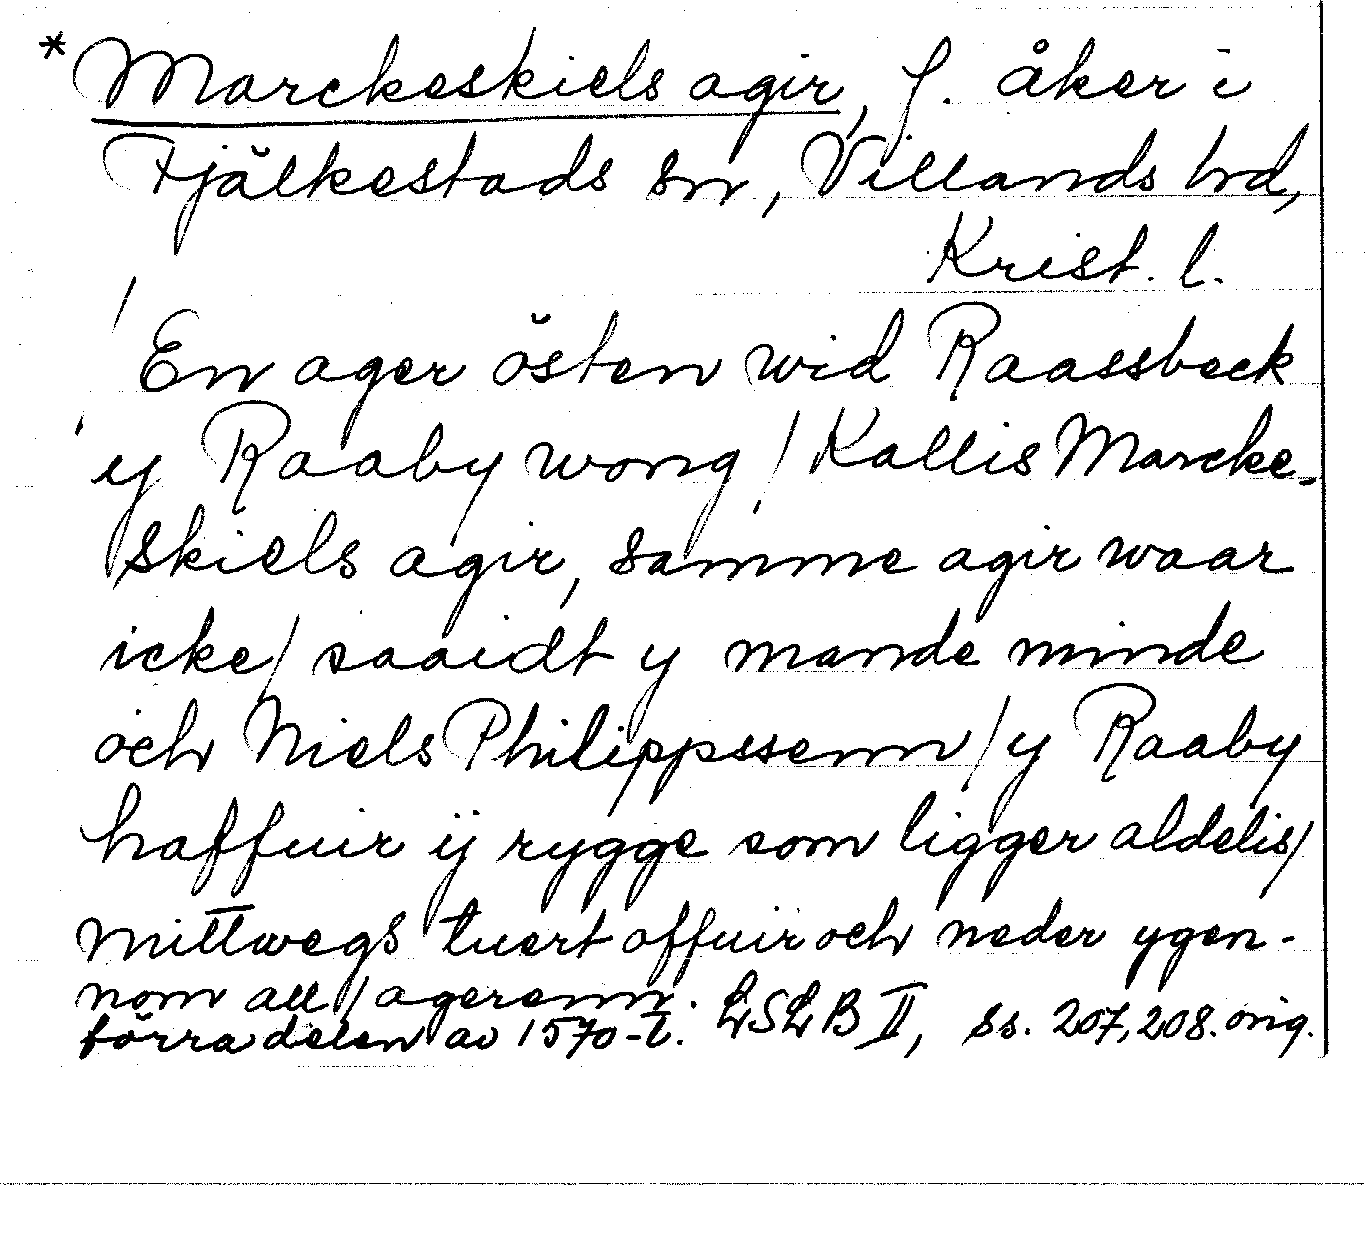 * Marckeskiels agir, f. åker i
Fjälkestads sn, Villands hrd,
Krist. l.
En ager östen wid Raassbeck
y Raaby wong / Kallis Marcke-
skiels agir, samme agir waar
icke / saaidt y mande minde
och Niels Philippssenn / y Raaby
haffuir ij rygge som ligger aldelis /
mittwegs tuert offuir och neder ygen-
nom all / agerenn.
förra delen av 1570-t. LSLB II, ss. 207, 208. orig.